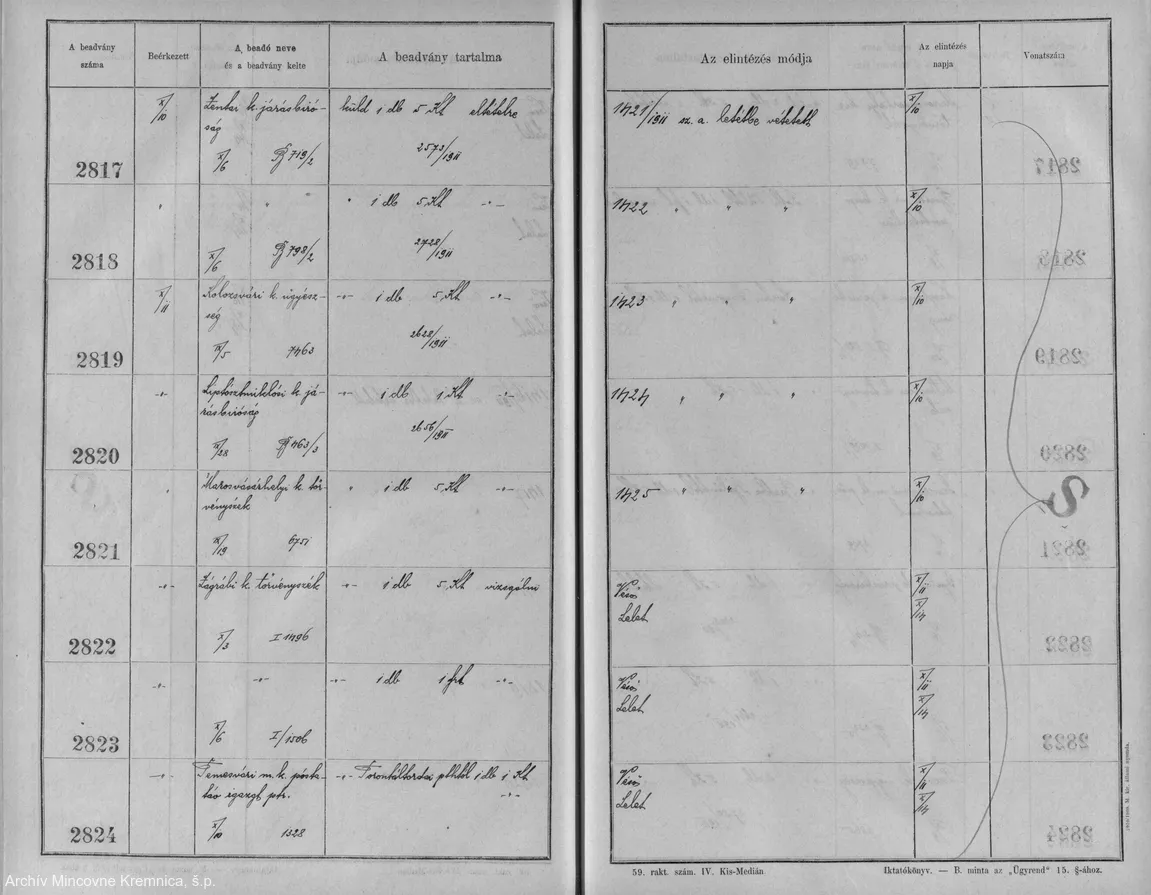 A beadvány száma
Beérkezett
A beadó neve és a beadvány kelte
A beadvány tartalma
Az elintézés módja
Az elintézés napja
Vonatszám
X/10 Zentai k. járásbiró- küld 1 db 5 Kt eltételre 1421/1911 sz. a. letétbe vétetett X/10
ság
2817 X/6 719/2 2573/1911
" " " 1 db 5 Kt -"- 1422 " " " X/10
2818 X/6 798/2 2728/1911
X/11 Kolozsvári k. ügyész- -"- 1 db 5 Kt -"- 1423 " " " X/10
ség
2819 IX/5 7463 2628/1911
-"- Liptósztmiklósi k. já- -"- 1 db 1 Kt -"- 1424 " " " X/10
rásbiróság
2820 IX/28 463/3 2656/1911
" Marosvásárhelyi k. tör- " 1 db 5 Kt -"- 1425 " " " X/10
vényszék
2821 IX/19 6751
-"- Zágrábi k. törvényszék -"- 1 db 5 Kt vizsgálni X/11
Lelet X/14
2822 X/3 I 1496
-"- -"- -"- 1 db 1 frt -"- X/11
Lelet X/14
2823 X/6 I/1506
-"- Temesvári m. k. pósta- -"- Torontáltordai 1 db 1 Kt X/11
táv igazgt -"- Lelet X/14
2824 X/10 1328
59. rakt. szám. IV. Kis-Medián.
Iktatókönyv. — B. minta az „Ügyrend" 15. §-ához.
Archív Mincovne Kremnica, š.p.